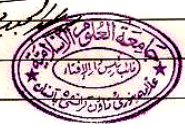 جامعة العلوم الاسلامية
نائب رئيس دار الافتاء
علامہ بنوری ٹاؤن کراچی ۵ پاکستان